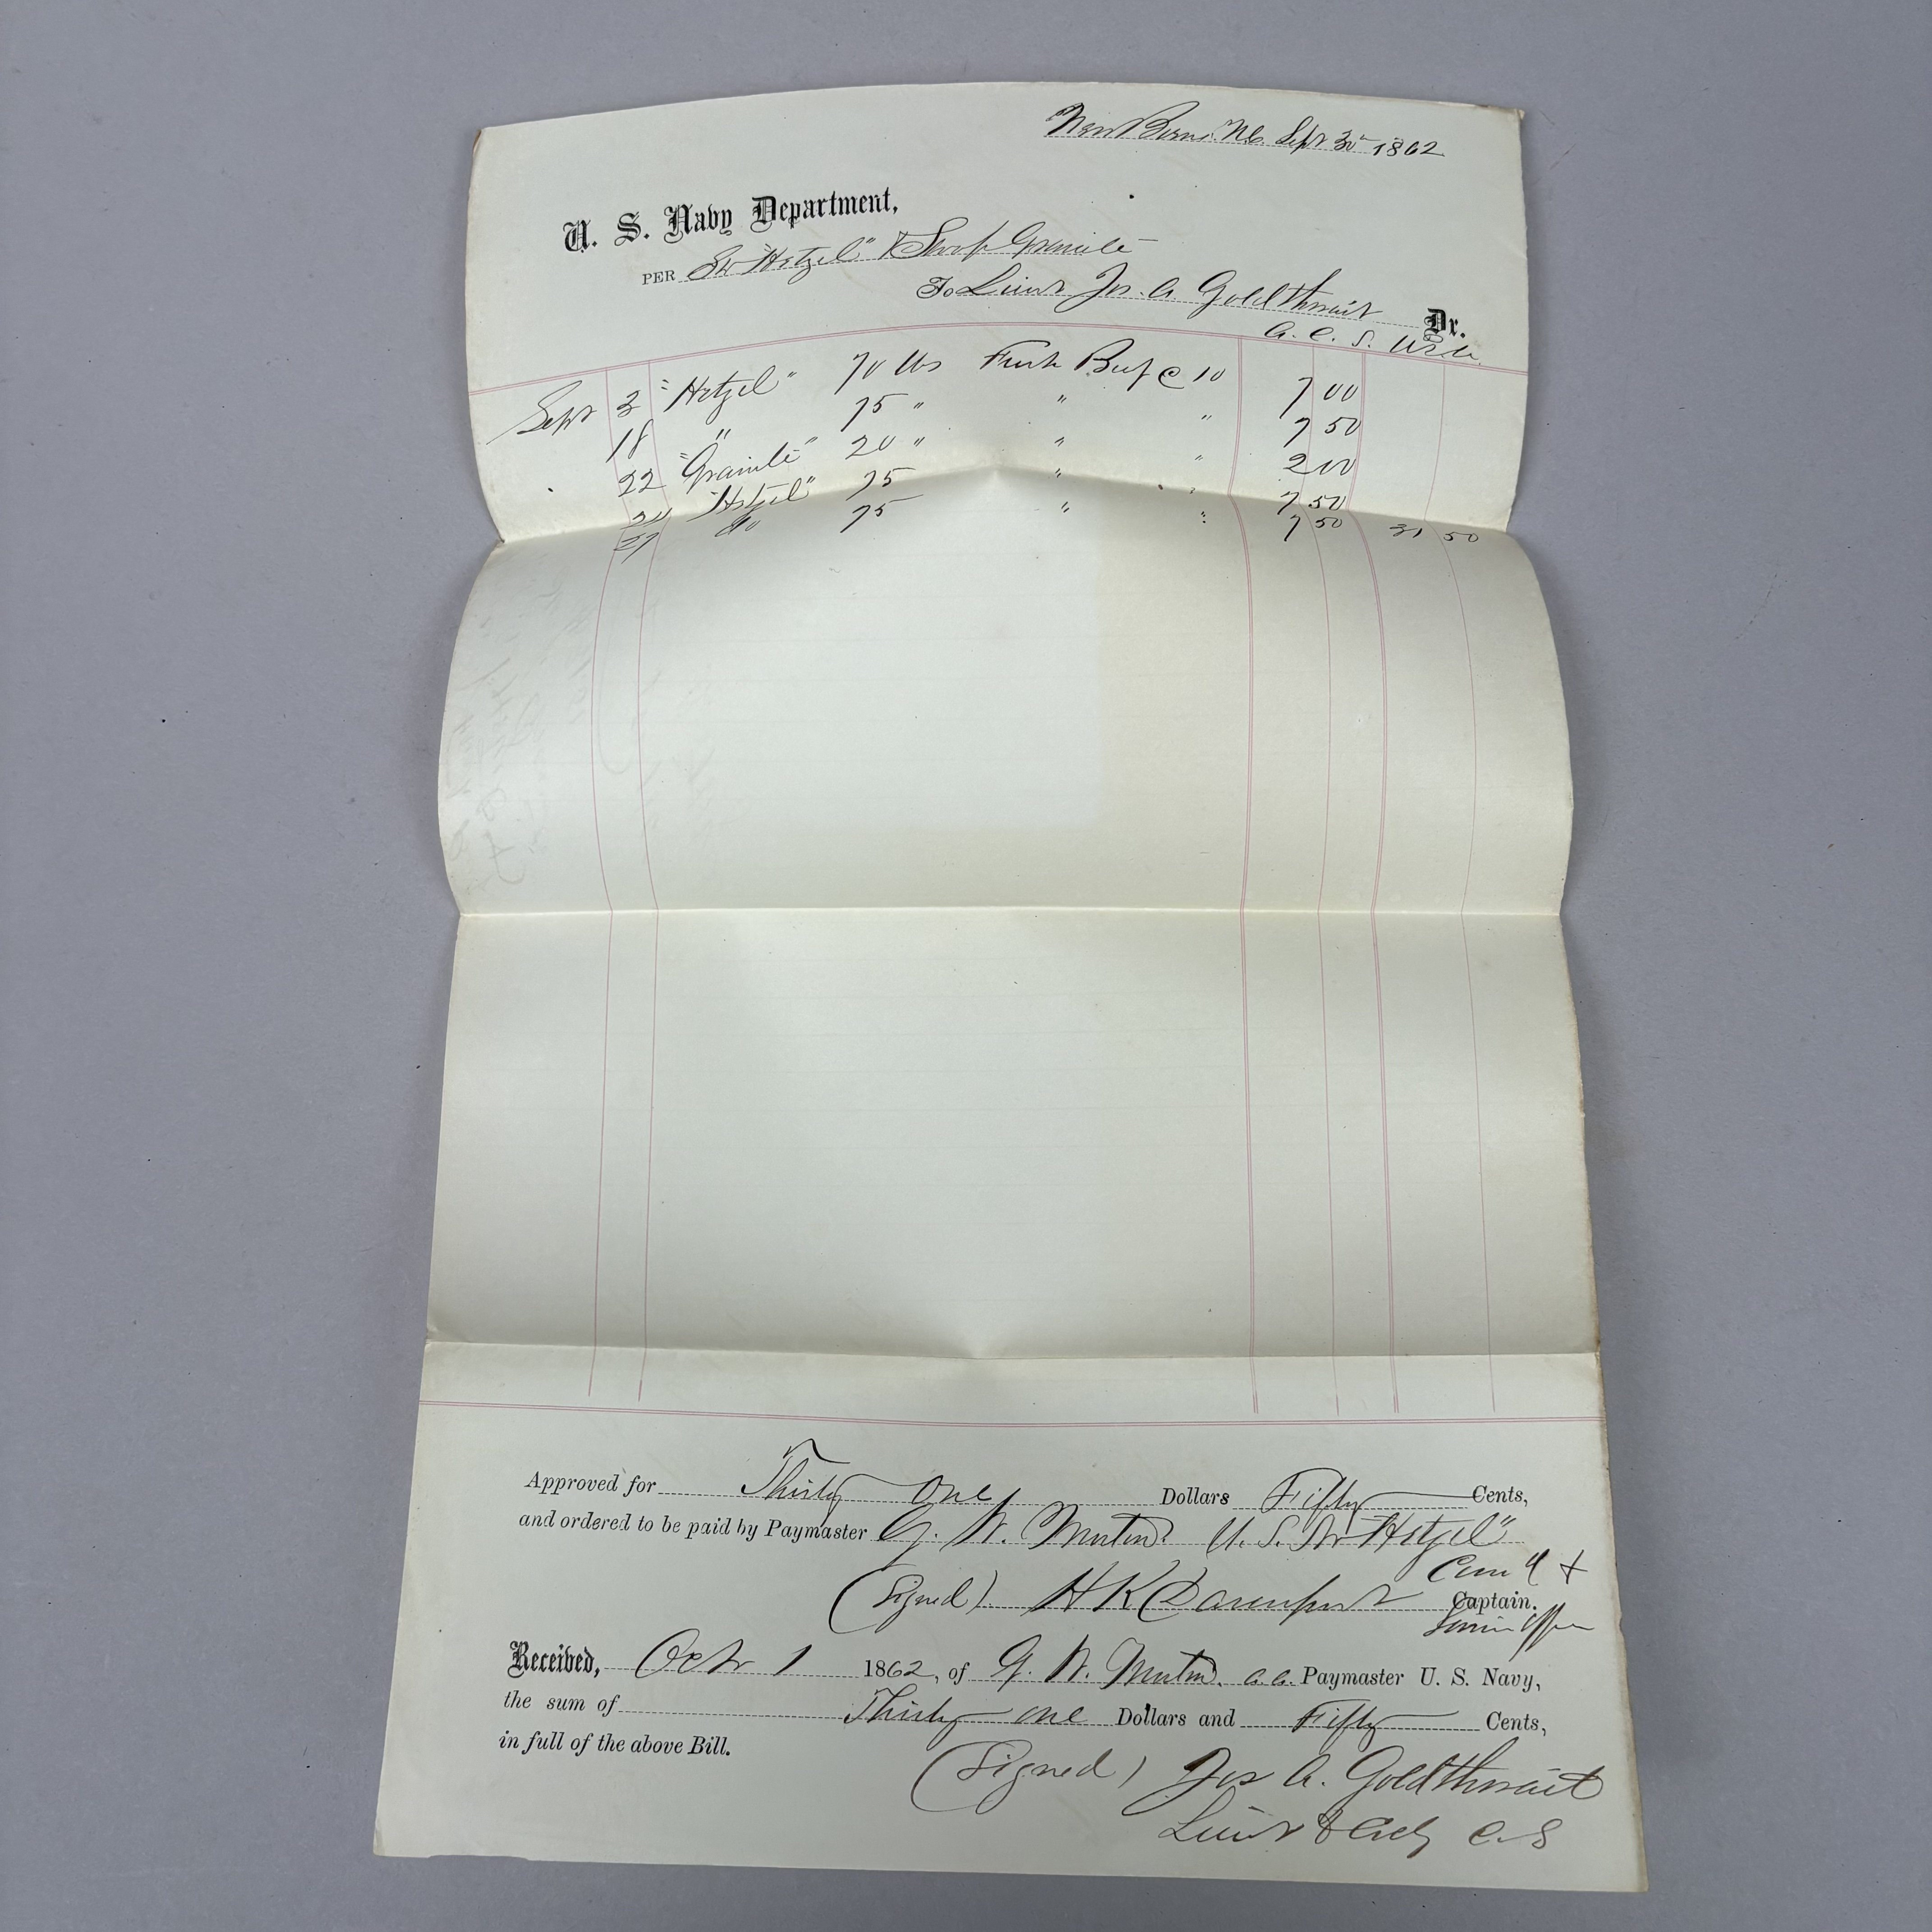 New Berne. N.C. Sept 30th 1862
U. S. Navy Department,
PER Str "Hetzel" & Sloop Granite
To Lieut Jos. A Goldthwait Dr.
A. C. S. USA.
Sept 3 "Hetzel" 70 lbs Fresh Beef @ 10 7 00
18 " 75 " " " 7 50
22 "Granite" 20 " " " 2 00
24 "Hetzel" 75 " " 7 50
27 do 75 " " 7 50 31 50
Approved for Thirty one Dollars Fifty Cents,
and ordered to be paid by Paymaster G. W. Morton. U. S. Str "Hetzel"
(Signed) H K Davenport Captain.
Com'd &
Senior Officer
Received, Octr 1 1862, of G. W. Morton. a. a. Paymaster U. S. Navy,
the sum of Thirty one Dollars and Fifty Cents,
in full of the above Bill.
(Signed) Jos A. Goldthwait
Lieut & C. S